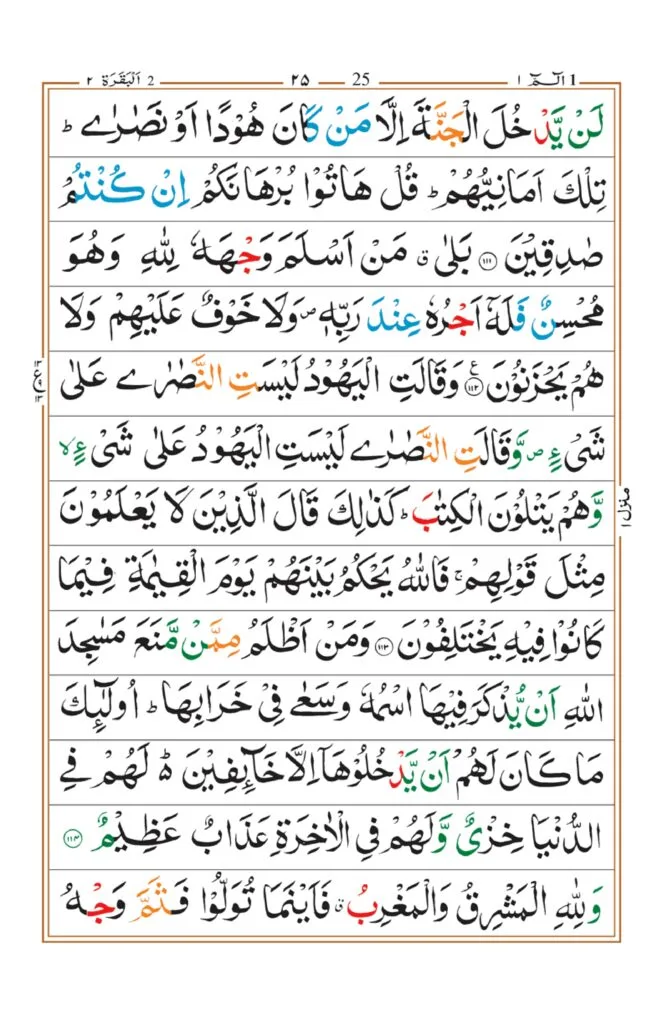 الٓمّٓ ١ 1 25 ٢٥ اَلْبَقَرَة ٢ 2
لَنْ يَّدْخُلَ الْجَنَّةَ اِلَّا مَنْ كَانَ هُوْدًا اَوْ نَصٰرٰے ؕ
تِلْكَ اَمَانِيُّهُمْ ؕ قُلْ هَاتُوْا بُرْهَانَكُمْ اِنْ كُنْتُمْ
صٰدِقِيْنَ ﴿١١١﴾ بَلٰى ۗ مَنْ اَسْلَمَ وَجْهَهٗ لِلّٰهِ وَهُوَ
مُحْسِنٌ فَلَهٗٓ اَجْرُهٗ عِنْدَ رَبِّهٖ ۪ وَلَا خَوْفٌ عَلَيْهِمْ وَلَا
هُمْ يَحْزَنُوْنَ ﴿١١٢﴾ وَقَالَتِ الْيَهُوْدُ لَيْسَتِ النَّصٰرٰے عَلٰى
شَىْءٍ ۪ وَّقَالَتِ النَّصٰرٰے لَيْسَتِ الْيَهُوْدُ عَلٰى شَىْءٍ ۙ
وَّهُمْ يَتْلُوْنَ الْكِتٰبَ ؕ كَذٰلِكَ قَالَ الَّذِيْنَ لَا يَعْلَمُوْنَ
مِثْلَ قَوْلِهِمْ ۚ فَاللّٰهُ يَحْكُمُ بَيْنَهُمْ يَوْمَ الْقِيٰمَةِ فِيْمَا
كَانُوْا فِيْهِ يَخْتَلِفُوْنَ ﴿١١٣﴾ وَمَنْ اَظْلَمُ مِمَّنْ مَّنَعَ مَسٰجِدَ
اللّٰهِ اَنْ يُّذْكَرَ فِيْهَا اسْمُهٗ وَسَعٰے فِيْ خَرَابِهَا ؕ اُولٰٓئِكَ
مَا كَانَ لَهُمْ اَنْ يَّدْخُلُوْهَآ اِلَّا خَآئِفِيْنَ ؕ۬ لَهُمْ فِے
الدُّنْيَا خِزْىٌ وَّلَهُمْ فِي الْاٰخِرَةِ عَذَابٌ عَظِيْمٌ ﴿١١٤﴾
وَلِلّٰهِ الْمَشْرِقُ وَالْمَغْرِبُ ۗ فَاَيْنَمَا تُوَلُّوْا فَثَمَّ وَجْهُ
منزل ١